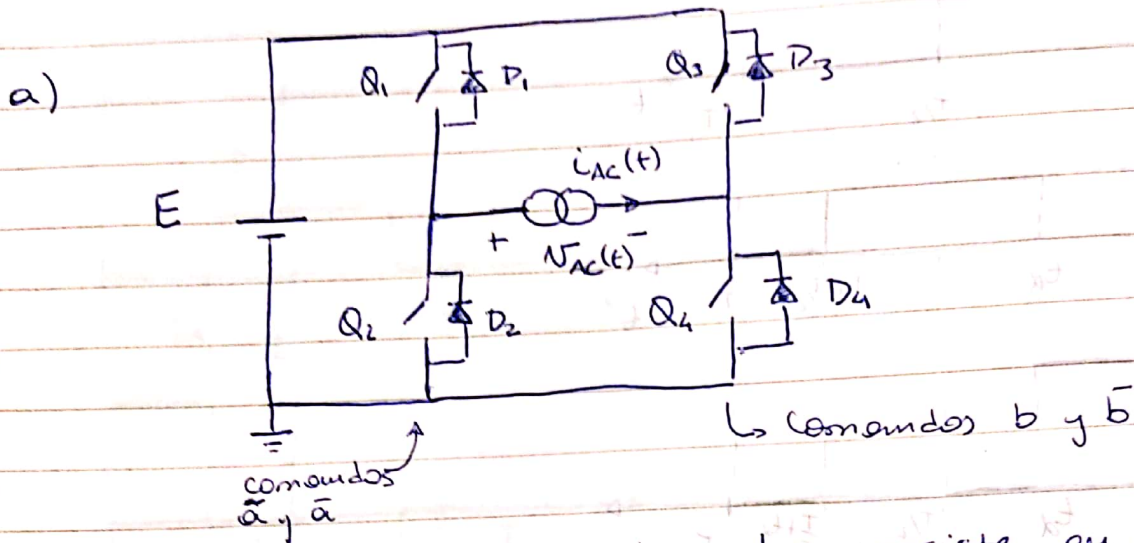 a)
Q₁
D₁
Q₃
D₃
i_AC(t)
E
+
v_AC(t)
-
Q₂
D₂
Q₄
D₄
↳ comandos b y b̄
comandos
ã y ā